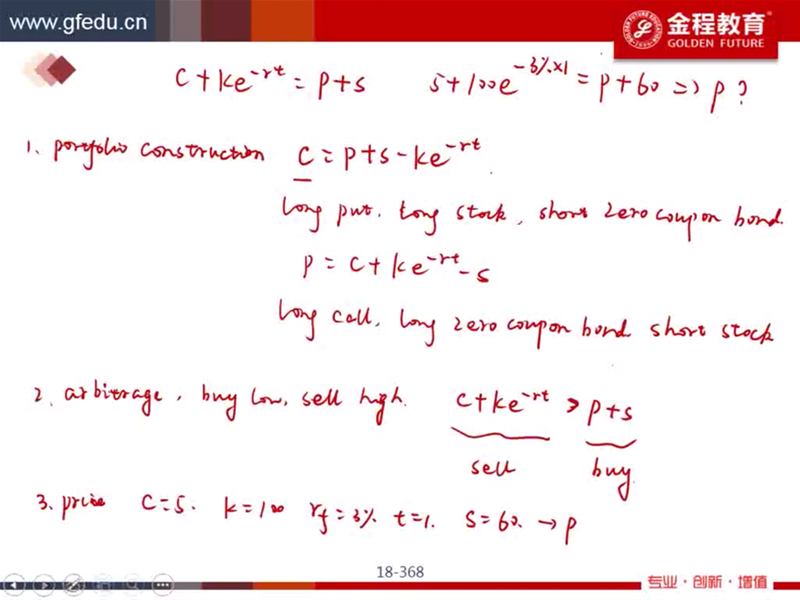 www.gfedu.cn
金程教育
GOLDEN FUTURE
c+ke^-rt = p+s    5+100e^-3%×1 = p+60 => p?
1. portfolio construction  c = p+s-ke^-rt
long put. long stock, short zero coupon bond.
p = c+ke^-rt-s
long call, long zero coupon bond short stock
2. arbitrage, buy low, sell high.  c+ke^-rt > p+s
sell  buy
3. price  c=5.  k=100  rf=3%  t=1.  s=60. → p
18-368
专业·创新·增值